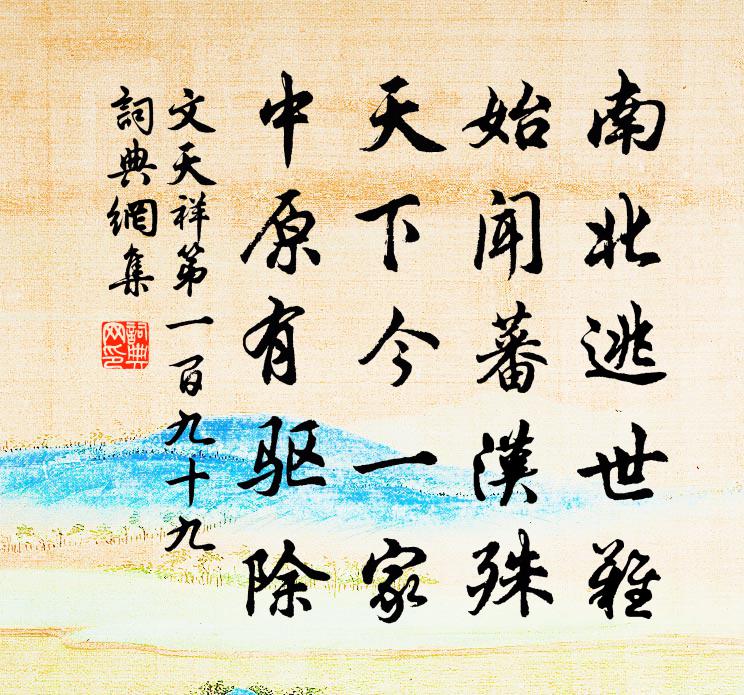 南北逃世難
始聞蕃漢殊
天下今一家
中原有驱除
文天祥第一百九十九
詞典網集
詞典网印